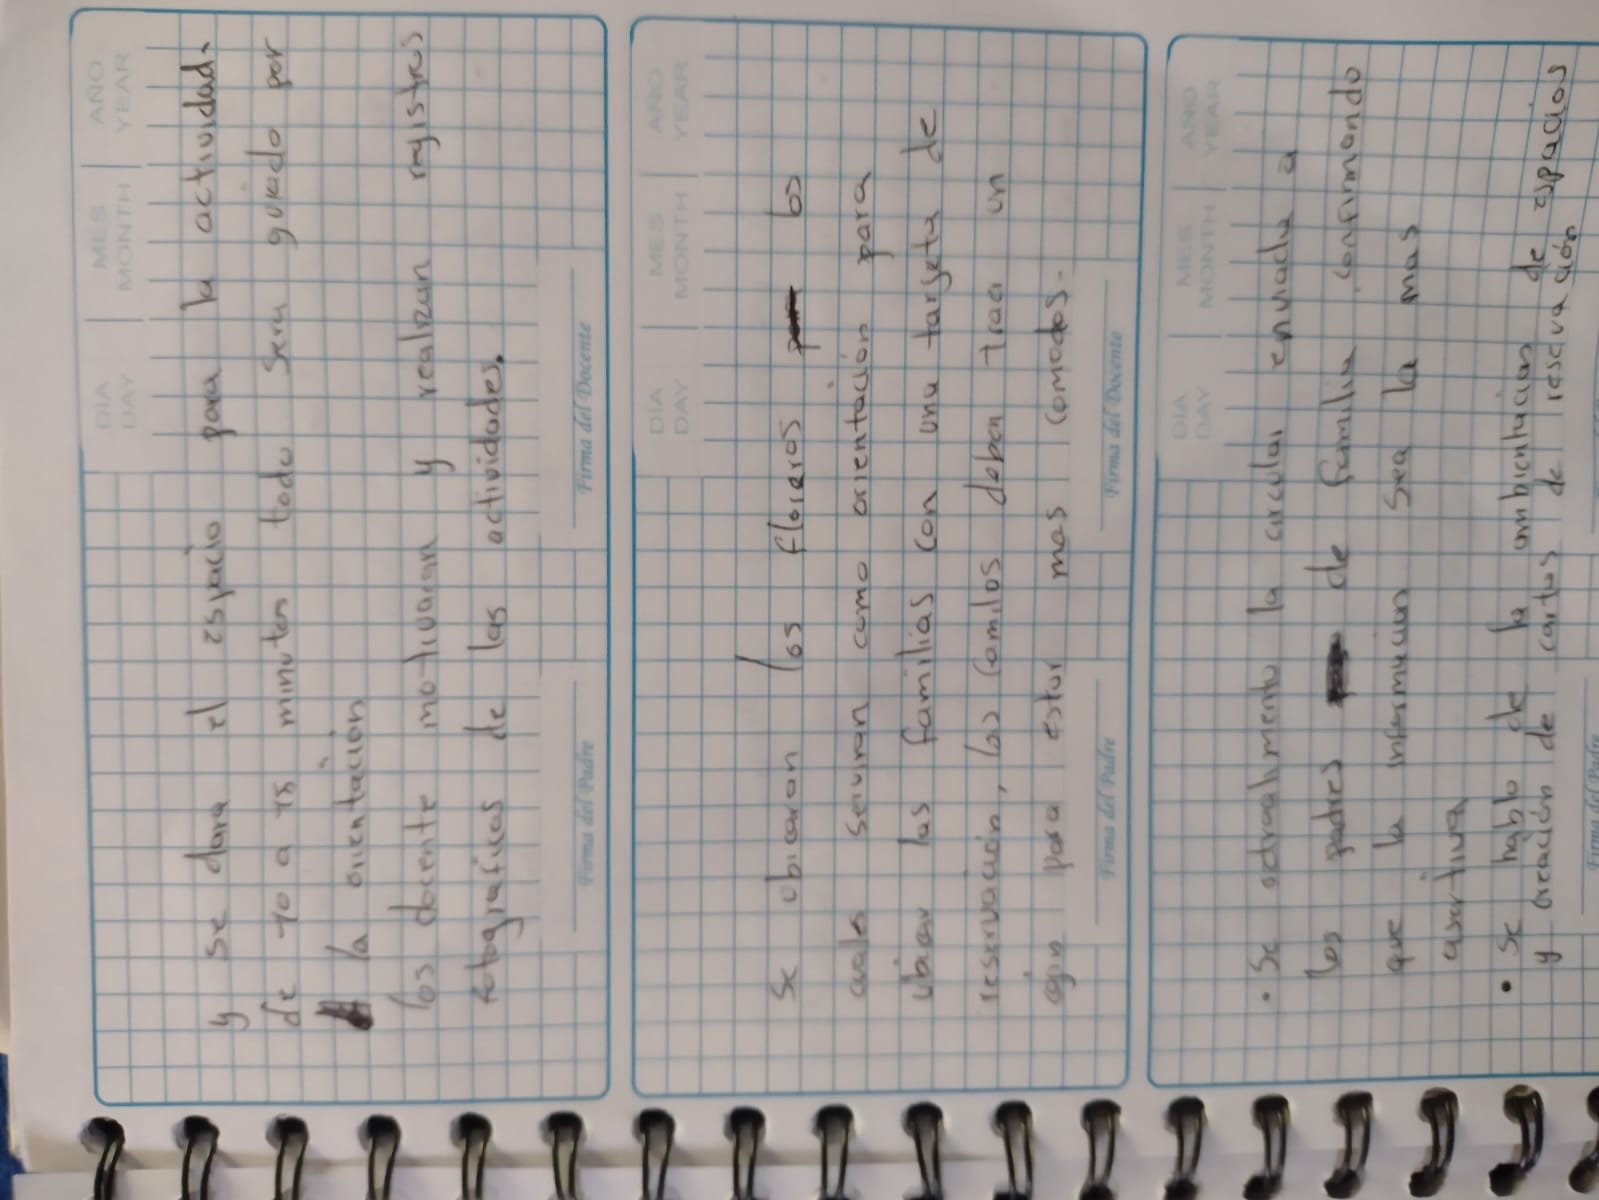 DÍA DAY MES MONTH AÑO YEAR
y se dara el espacio para la actividad,
de 10 a 15 minutos todo sera guiado por
la orientación
los docente motivaran y realizan registros
fotograficos de las actividades.
Firma del Padre Firma del Docente
DÍA DAY MES MONTH AÑO YEAR
Se ubicaron los floreros los
cuales serviran como orientación para
ubicar las familias con una targeta de
reservación, los camilos deben traer un
cojin para estar mas comodos.
Firma del Padre Firma del Docente
DÍA DAY MES MONTH AÑO YEAR
• Se la circular enviada a
los padres de familia, confirmando
que la información sea la mas
asertiva
• Se hablo de la ambientacion de espacios
y creación de cartas de reservación
Firma del Padre